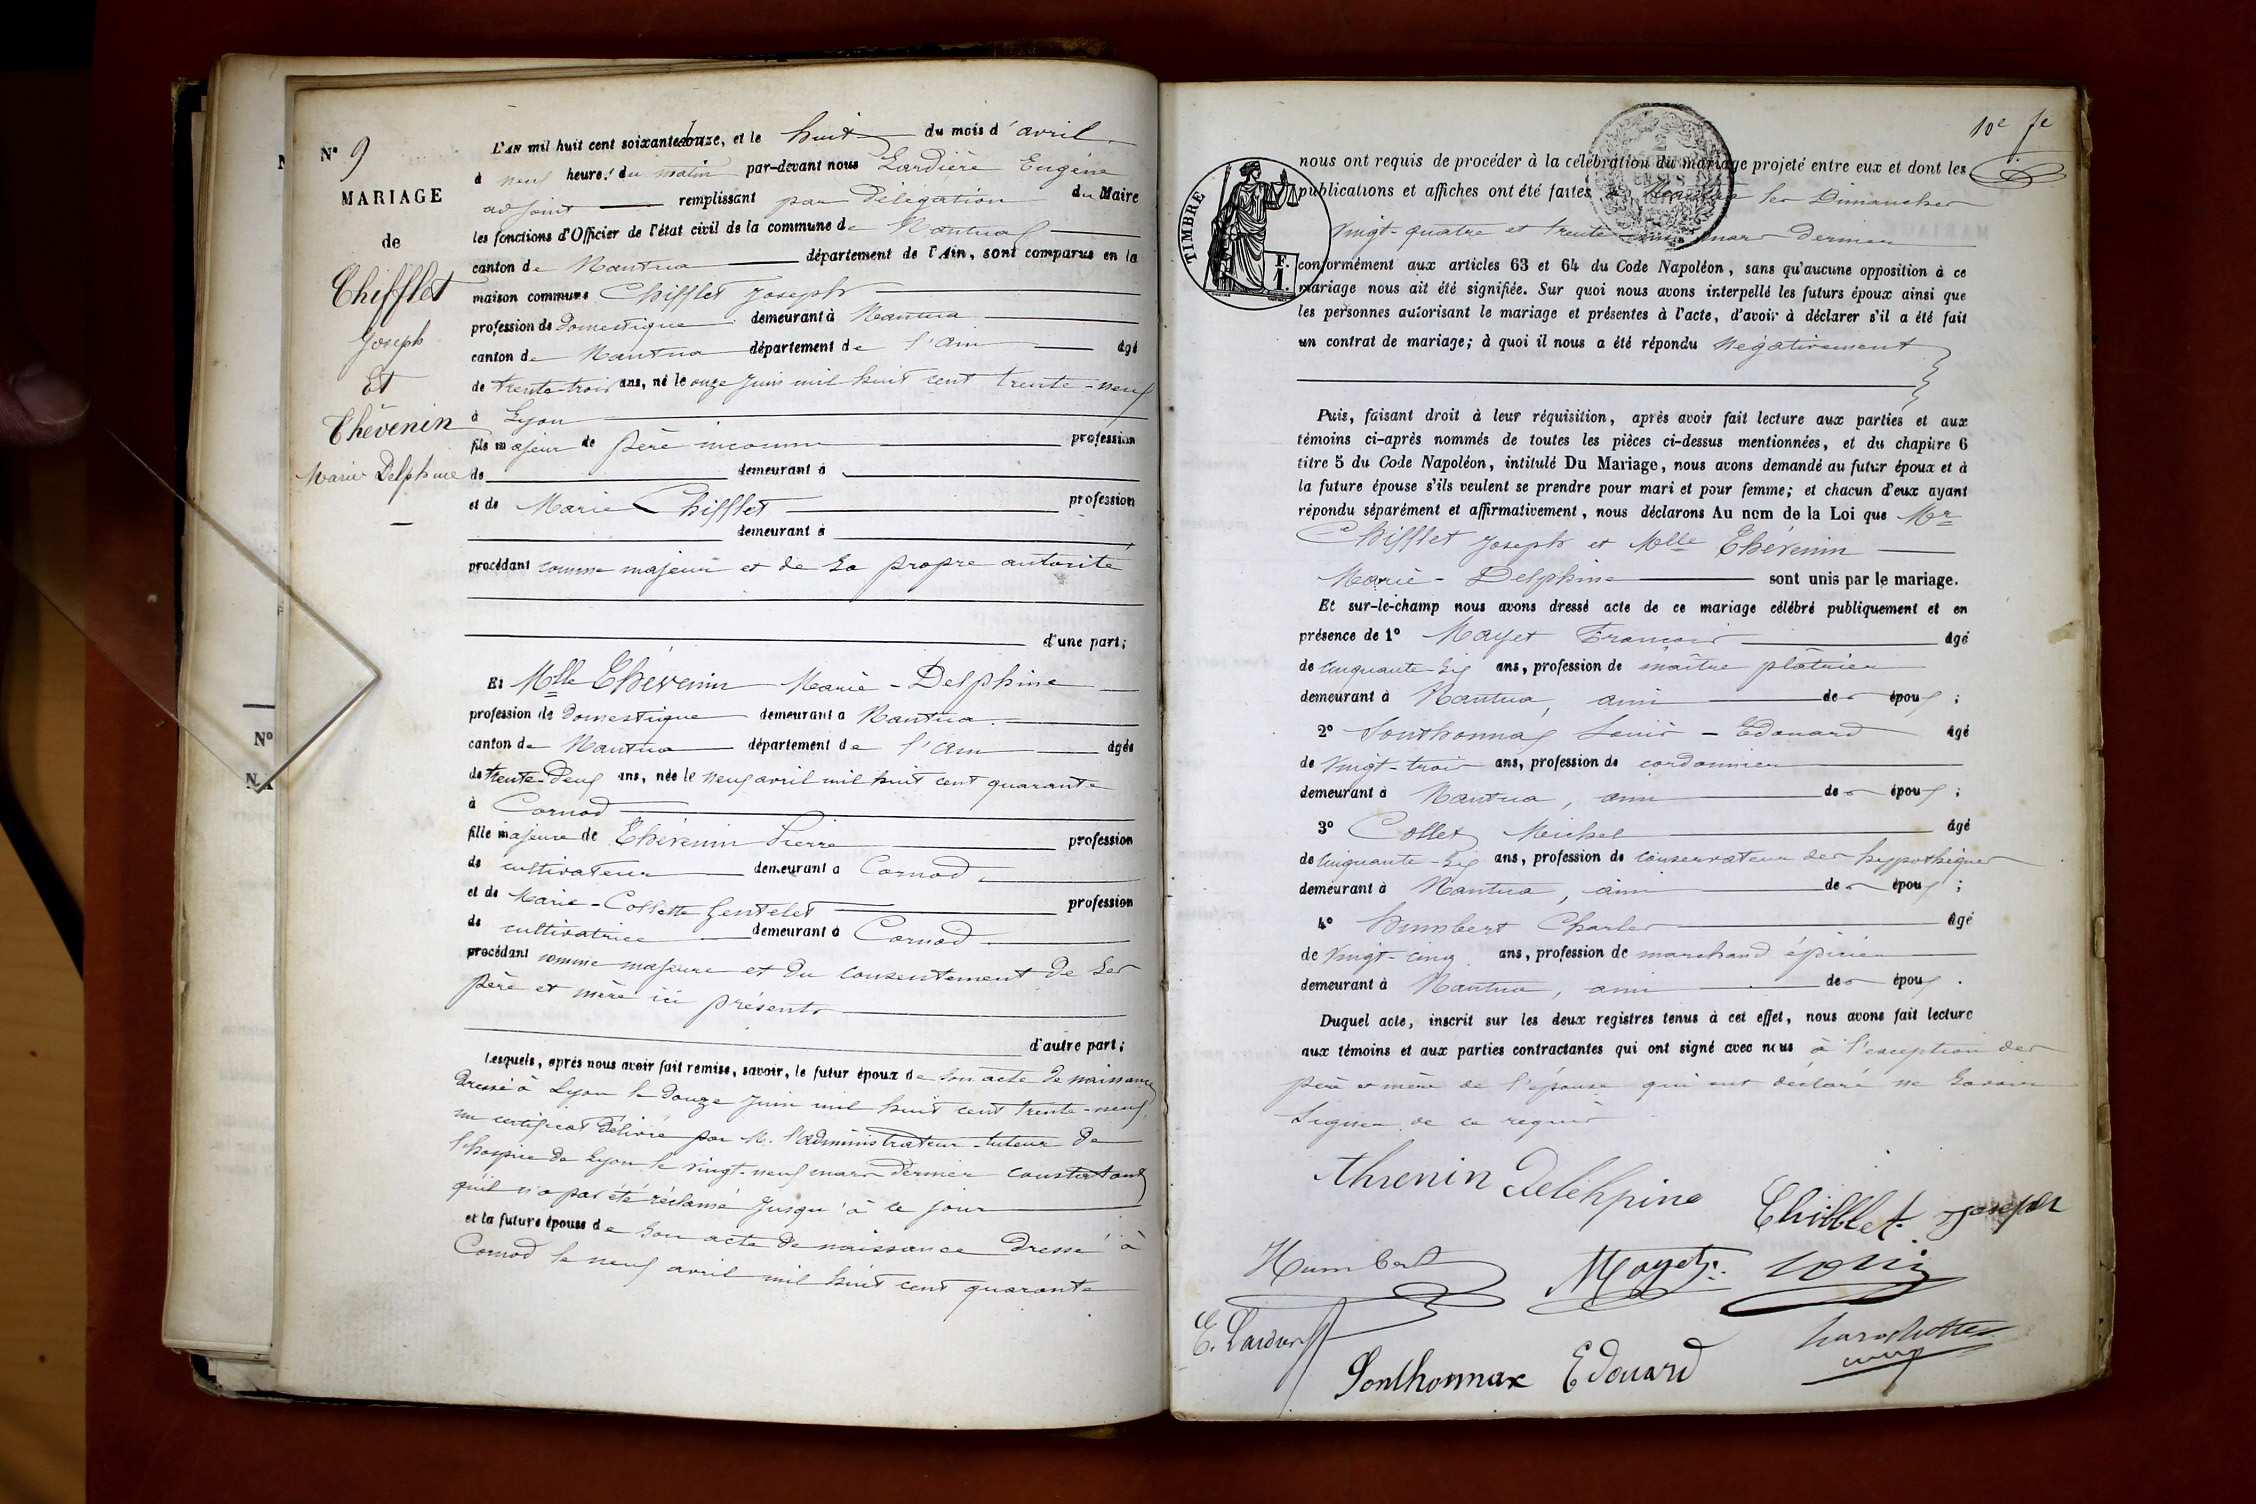 N° 9
MARIAGE
de
Chifflet
Joseph
Et
Thévenin
Marie Delphine
L'AN mil huit cent soixante douze, et le huit du mois d'avril
à neuf heures du matin par-devant nous Lardière Eugène
adjoint remplissant par délégation du Maire
les fonctions d'Officier de l'état civil de la commune de Nantua
canton de Nantua département de l'Ain, sont comparus en la
maison commune Chifflet Joseph
profession de Domestique demeurant à Nantua
canton de Nantua département de l'ain âgé
de trente-trois ans, né le onze juin mil huit cent trente-neuf
à Lyon
fils majeur de père inconnu profession
de demeurant à
et de Marie Chifflet profession
demeurant à
procédant comme majeur et de sa propre autorité
d'une part;
Et Mlle Thévenin Marie-Delphine
profession de Domestique demeurant à Nantua
canton de Nantua département de l'ain âgée
de trente-deux ans, née le neuf avril mil huit cent quarante
à Cornod
fille majeure de Thévenin Pierre profession
de cultivateur demeurant à Cornod
et de Marie-Collette Gentelet profession
de cultivatrice demeurant à Cornod
procédant comme majeure et du consentement de ses
père et mère ici présents
d'autre part;
Lesquels, après nous avoir fait remise, savoir, le futur époux de son acte de naissance
dressé à Lyon le douze juin mil huit cent trente-neuf,
un certificat délivré par M. l'administrateur-tuteur de
l'hospice de Lyon le vingt-neuf mars dernier constatant
qu'il n'a pas été réclamé jusqu'à ce jour
et la future épouse de son acte de naissance dressé à
Cornod le neuf avril mil huit cent quarante
10e fe
TIMBRE
F. 1.
nous ont requis de procéder à la célébration du mariage projeté entre eux et dont les
publications et affiches ont été faites à Nantua les Dimanches
vingt-quatre et trente-un mars dernier
conformément aux articles 63 et 64 du Code Napoléon, sans qu'aucune opposition à ce
mariage nous ait été signifiée. Sur quoi nous avons interpellé les futurs époux ainsi que
les personnes autorisant le mariage et présentes à l'acte, d'avoir à déclarer s'il a été fait
un contrat de mariage; à quoi il nous a été répondu Négativement
Puis, faisant droit à leur réquisition, après avoir fait lecture aux parties et aux
témoins ci-après nommés de toutes les pièces ci-dessus mentionnées, et du chapitre 6
titre 5 du Code Napoléon, intitulé Du Mariage, nous avons demandé au futur époux et à
la future épouse s'ils veulent se prendre pour mari et pour femme; et chacun d'eux ayant
répondu séparément et affirmativement, nous déclarons Au nom de la Loi que Mr
Chifflet Joseph et Mlle Thévenin
Marie-Delphine sont unis par le mariage.
Et sur-le-champ nous avons dressé acte de ce mariage célébré publiquement et en
présence de 1° Mayet François âgé
de cinquante-six ans, profession de maître plâtrier
demeurant à Nantua, ami des époux;
2° Sonthonnax Louis-Edouard âgé
de vingt-trois ans, profession de cordonnier
demeurant à Nantua, ami des époux;
3° Collet Michel âgé
de cinquante-six ans, profession de conservateur des hypothèques
demeurant à Nantua, ami des époux;
4° Humbert Charles âgé
de vingt-cinq ans, profession de marchand épicier
demeurant à Nantua, ami des époux.
Duquel acte, inscrit sur les deux registres tenus à cet effet, nous avons fait lecture
aux témoins et aux parties contractantes qui ont signé avec nous à l'exception des
père et mère de l'épouse qui ont déclaré ne savoir
signer de ce requis
threnin delehpine
Chifflet Joseph
Humbert Mayet
E. Lardière
Sonthonnax Edouard